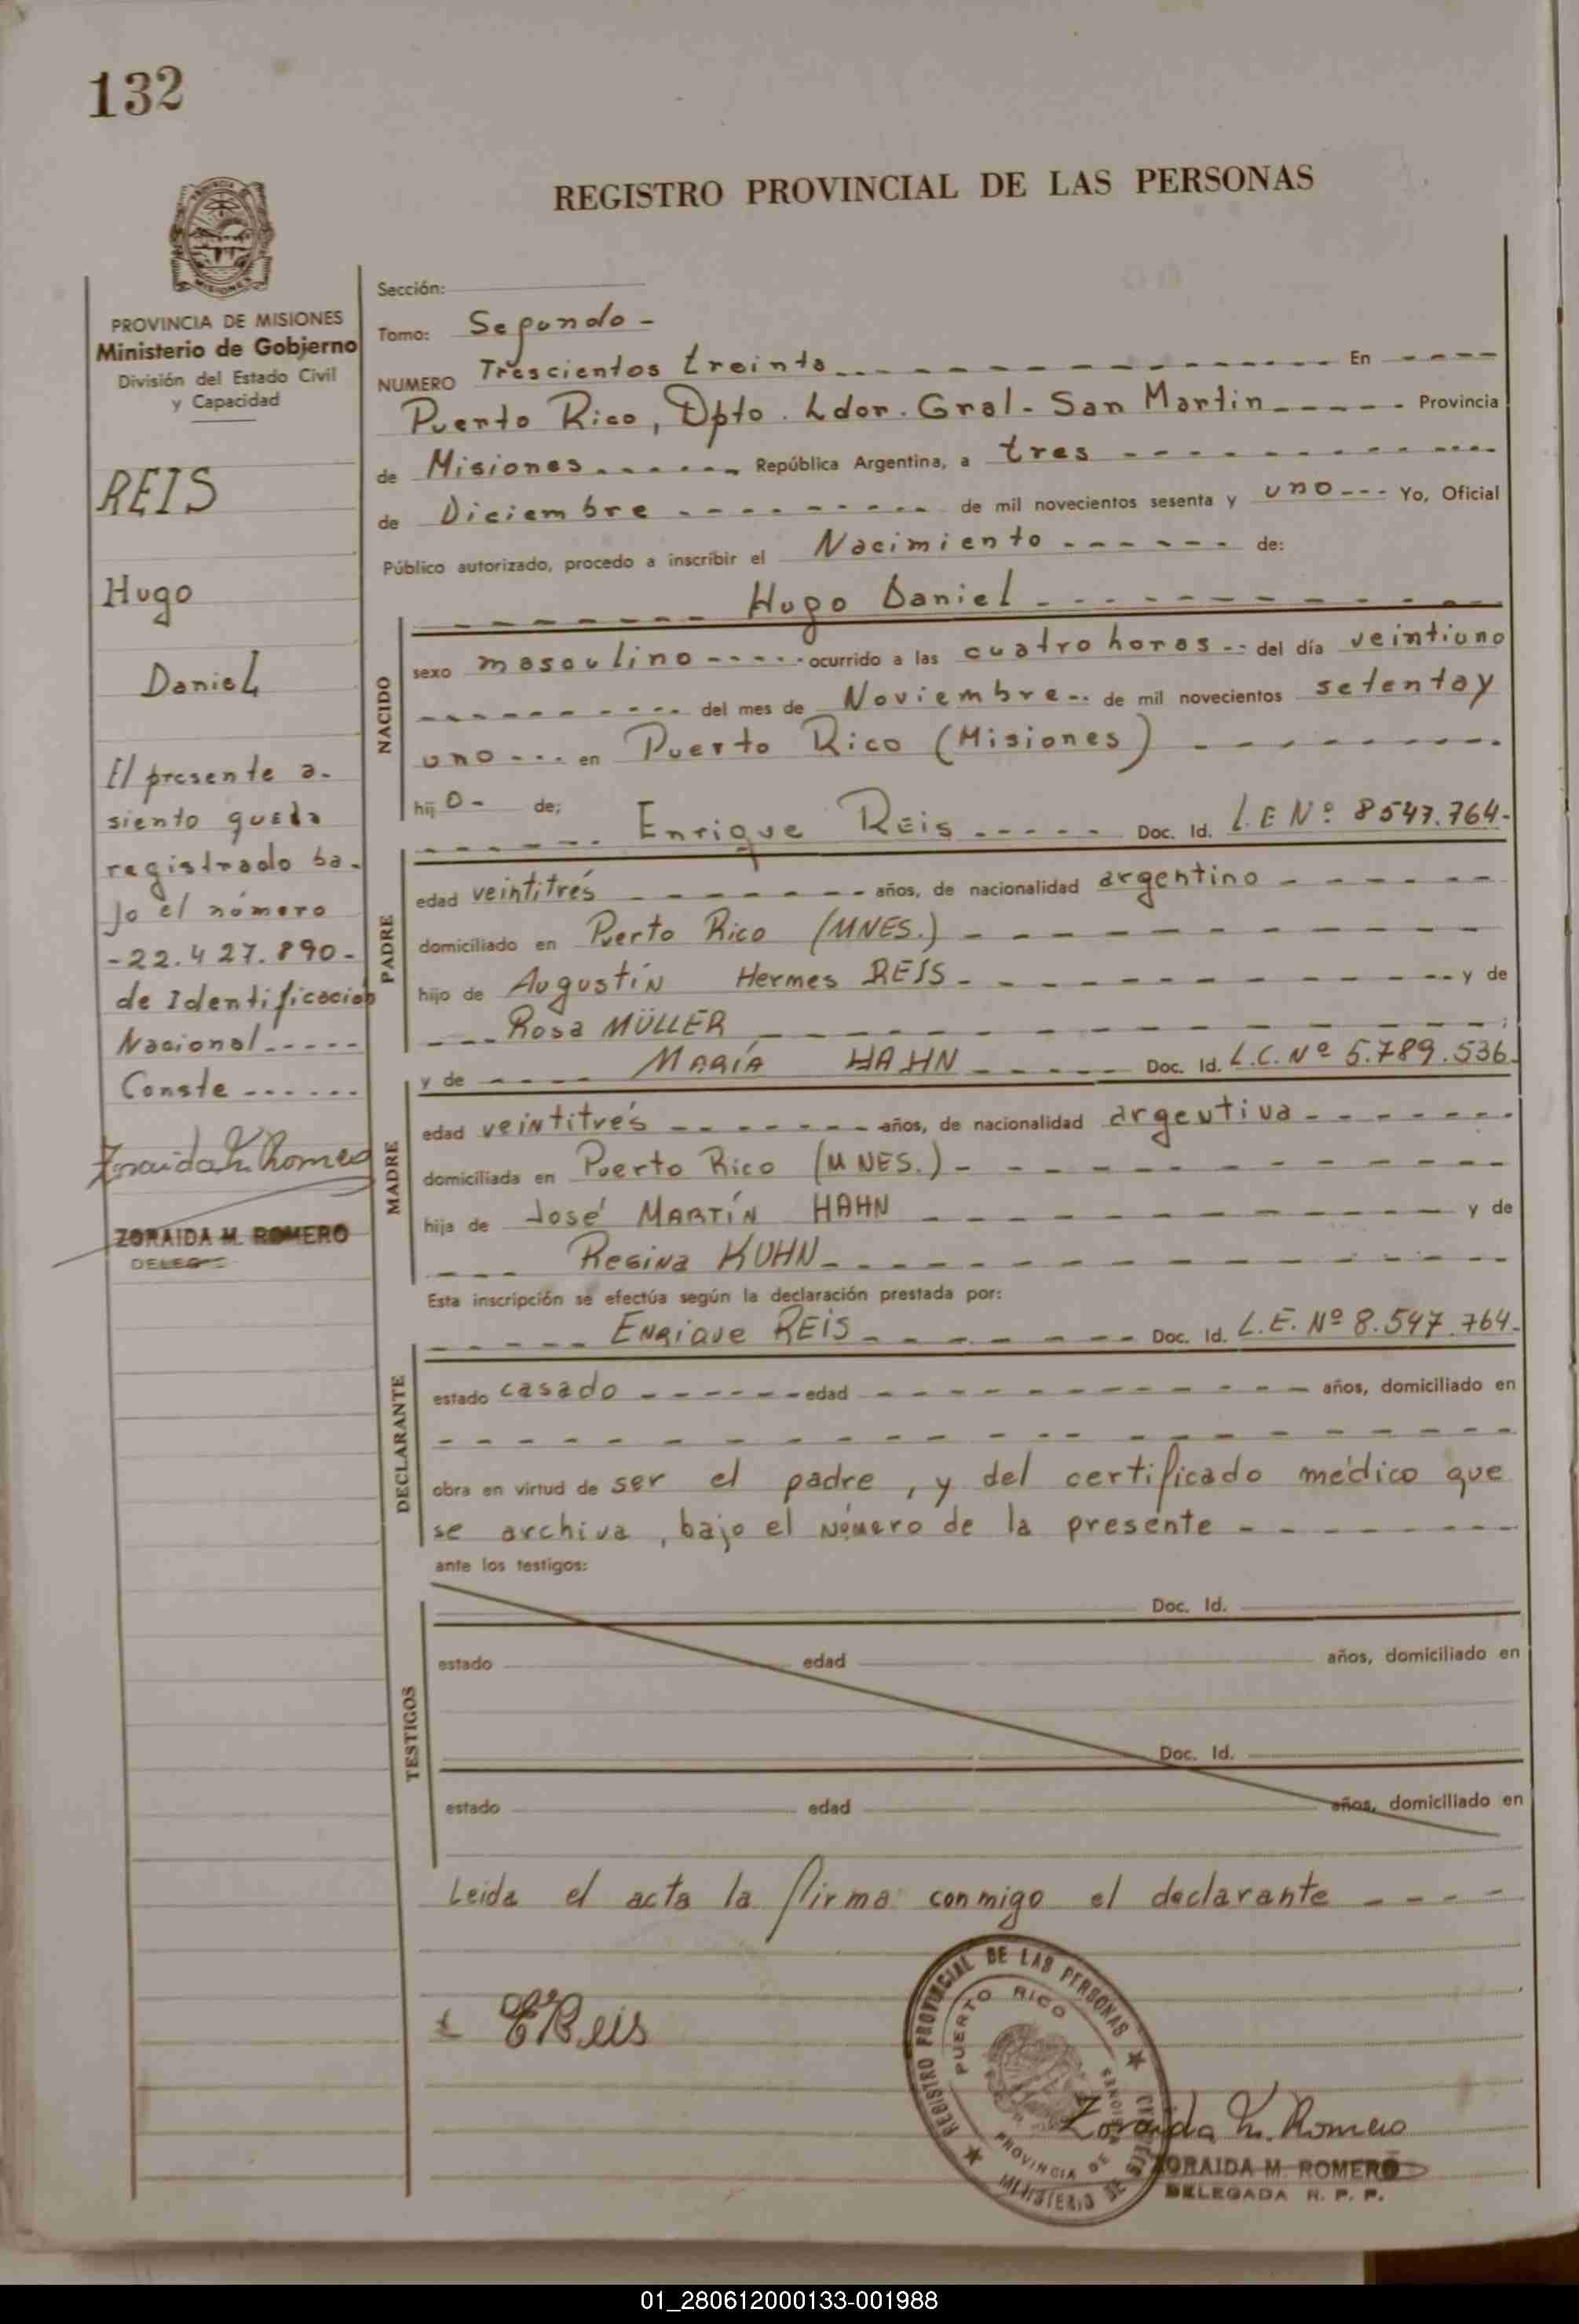 132
REGISTRO PROVINCIAL DE LAS PERSONAS
PROVINCIA DE MISIONES
Ministerio de Gobierno
División del Estado Civil
y Capacidad
REIS
Hugo
Daniel
El presente a-
siento queda
registrado ba-
jo el número
-22.427.890-
de Identificación
Nacional-----
Conste ------
Zoraida M. Romero
ZORAIDA M. ROMERO
DELEG
Sección:
Tomo: Segundo -
NUMERO Trescientos treinta ------------ En ----
Puerto Rico, Dpto. Ldor. Gral. San Martin ----- Provincia
de Misiones ------ República Argentina, a tres ------------
de Diciembre --------- de mil novecientos sesenta y uno --- Yo, Oficial
Público autorizado, procedo a inscribir el Nacimiento ------ de:
------- Hugo Daniel -----------
NACIDO
sexo masculino ----- ocurrido a las cuatro horas -- del día veintiuno
---------- del mes de Noviembre -- de mil novecientos setenta y
uno --- en Puerto Rico (Misiones) --------
hij o - de;
------ Enrique Reis ----- Doc. Id. L.E Nº 8547.764-
PADRE
edad veintitrés ------- años, de nacionalidad argentino ------
domiciliado en Puerto Rico (MNES.) -----------
hijo de Augustín Hermes REIS ----------- y de
--- Rosa MÜLLER ------------ ;
y de ---- MARÍA HAHN ----- Doc. Id. L.C. Nº 5.789.536-
MADRE
edad veintitrés ------- años, de nacionalidad argentina -------
domiciliada en Puerto Rico (MNES.) -----------
hija de José MARTÍN HAHN ----------- y de
--- Regina KUHN --------------
Esta inscripción se efectúa según la declaración prestada por:
----- ENRIQUE REIS ------- Doc. Id. L.E. Nº 8.547.764-
DECLARANTE
estado casado ------ edad ----------- años, domiciliado en
--------------------
obra en virtud de ser el padre, y del certificado médico que
se archiva, bajo el número de la presente -------
ante los testigos:
TESTIGOS
Doc. Id.
estado edad años, domiciliado en
Doc. Id.
estado edad años, domiciliado en
Leida el acta la firma conmigo el declarante ----
EReis
REGISTRO PROVINCIAL DE LAS PERSONAS
PUERTO RICO
PROVINCIA DE MISIONES
MINISTERIO DE
Zoraida M. Romero
ZORAIDA M. ROMERO
DELEGADA R. P. P.
01_280612000133-001988